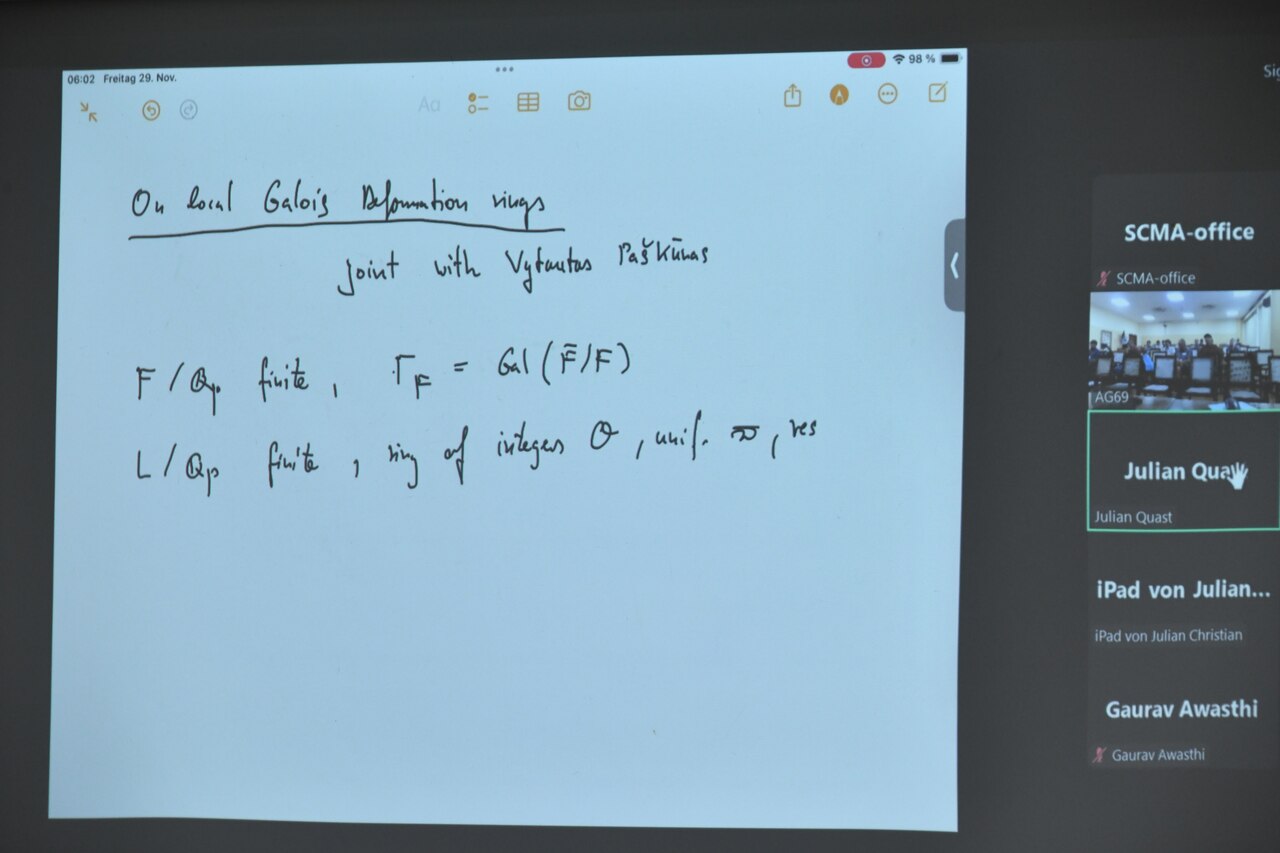 06:02 Freitag 29. Nov.
98 %
Aa
On local Galois Deformation rings
joint with Vytautas Paškūnas
F / ℚp finite, Γ_F = Gal (F̄/F)
L / ℚp finite, ring of integers 𝒪, unif. ϖ, res
SCMA-office
SCMA-office
AG69
Julian Qua
Julian Quast
iPad von Julian...
iPad von Julian Christian
Gaurav Awasthi
Gaurav Awasthi